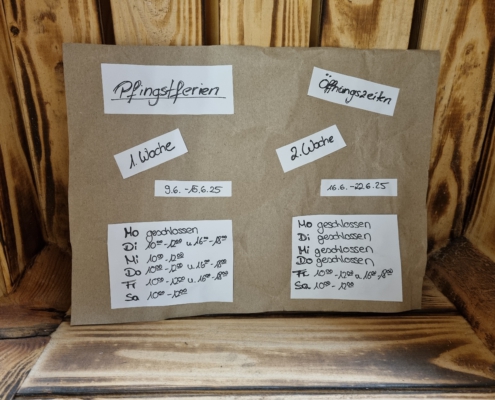 Pfingstferien
Öffnungszeiten
1. Woche
9.6. - 15.6.25
Mo geschlossen
Di 10⁰⁰ - 12⁰⁰ u. 16⁰⁰ - 18⁰⁰
Mi 10⁰⁰ - 12⁰⁰
Do 10⁰⁰ - 12⁰⁰ u. 16⁰⁰ - 18⁰⁰
Fr 10⁰⁰ - 12⁰⁰ u. 16⁰⁰ - 18⁰⁰
Sa 10⁰⁰ - 12⁰⁰
2. Woche
16.6. - 22.6.25
Mo geschlossen
Di geschlossen
Mi geschlossen
Do geschlossen
Fr 10⁰⁰ - 12⁰⁰ u 16⁰⁰ - 18⁰⁰
Sa 10⁰⁰ - 12⁰⁰